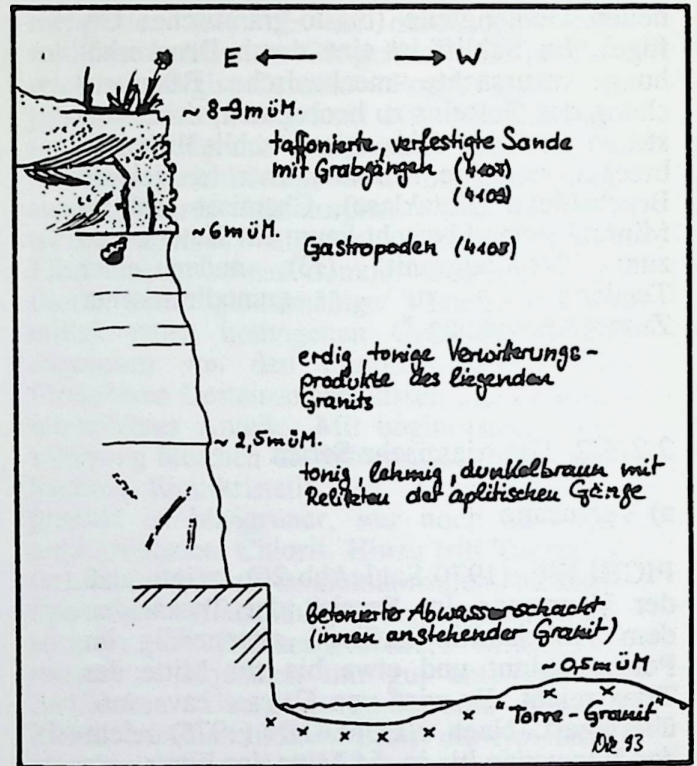 E W
8-9müM.
taffonierte, verfestigte Sande
mit Grabgängen
(4109)
~6müM.
Gastropoden (4105)
erdig, tonige Verwitterungs-
produkte des liegenden
Granits
~2,5müM.
tonig, lehmig, dunkelbraun mit
Relikten der aplitischen Gänge
betonierter Abwasserschacht
(innen anstehender Granit)
~0,5müM
"Torre-Granit"
93